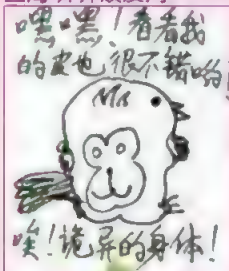 嘿嘿！看看我
的皮也很不错哟
唉！诡异的身体！